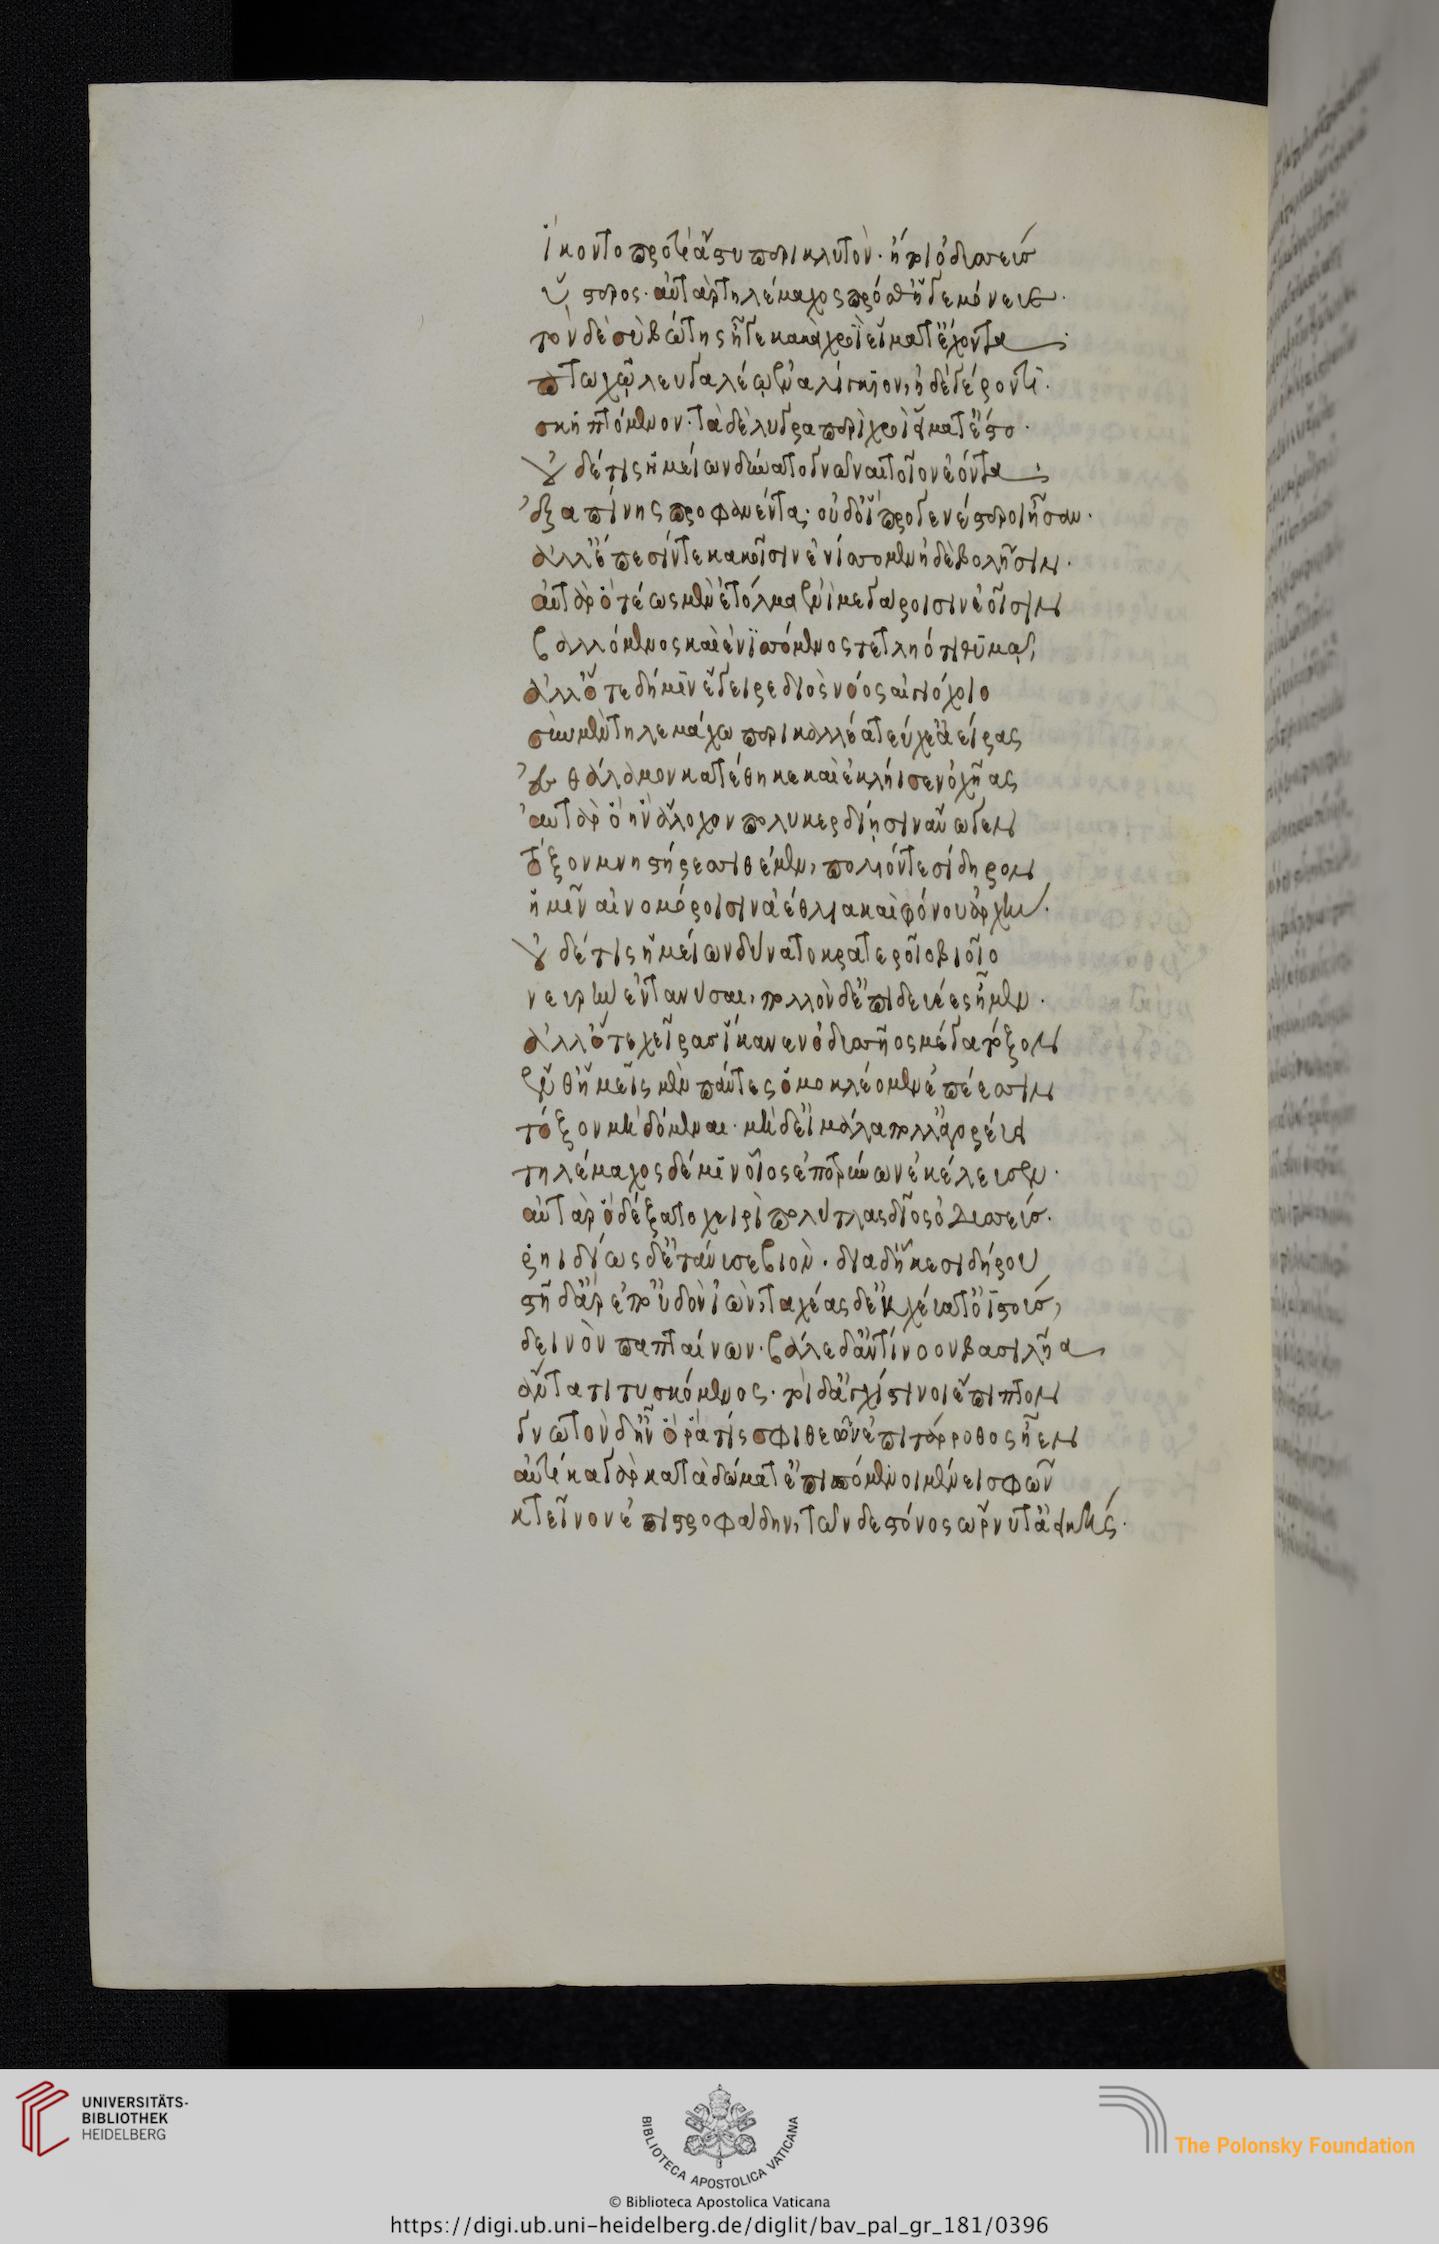 ἵκοντο προτὶ ἄστυ περικλυτόν· ἤτοι ὀδυσσεὺς
ὕστερος· αὐτὰρ τηλέμαχος πρόσθ' ἡγεμόνευε·
τὸν δὲ συβώτης ἦγε κακὰ χροῒ εἵματ' ἔχοντα
πτωχῷ λευγαλέῳ ἐναλίγκιον, ἠδὲ γέροντι·
σκηπτόμενον· τὰ δὲ λυγρὰ περὶ χροῒ εἵματα ἕστο·
οὐδέ τις ἡμείων δύνατο γνῶναι τοῖον ἐόντα
ἐξαπίνης προφανέντα· οὐδ' οἳ προγενέστεροι ἦσαν·
ἀλλ' ἔπεσίν τε κακοῖσιν ἐνίπτομεν ἠδὲ βολῇσιν·
αὐτὰρ ὁ τέως μὲν ἐτόλμα ἐνὶ μεγάροισιν ἑοῖσιν
βαλλόμενος καὶ ἐνιπτόμενος τετληότι θυμῷ,
ἀλλ' ὅτε δή μιν ἔγειρε διὸς νόος αἰγιόχοιο
σὺν μὲν τηλεμάχω περικαλλέα τεύχε' ἀείρας
ἐς θάλαμον κατέθηκε καὶ ἐκλήισεν ὀχῆας
αὐτὰρ ὁ ἣν ἄλοχον πολυκερδίῃσιν ἄνωγεν
τόξον μνηστήρεσσι θέμεν, πολιόν τε σίδηρον
ἡμῖν αἰνομόροισιν ἀέθλια καὶ φόνου ἀρχήν.
οὐδέ τις ἡμείων δύνατο κρατεροῖο βιοῖο
νευρὴν ἐντανύσαι, πολλὸν δ' ἐπιδευέες ἦμεν·
ἀλλ' ὅτε χεῖρας ἵκανεν ὀδυσσῆος μέγα τόξον
ἔνθ' ἡμεῖς μὲν πάντες ὁμοκλέομεν ἐπέεσσιν
τόξον μὴ δόμεναι· μὴ δ' εἰ μάλα πολλ' ἀγορεύει
τηλέμαχος δέ μιν οἶος ἐποτρύνων ἐκέλευσεν·
αὐτὰρ ὁ δέξατο χειρὶ πολύτλας δῖος ὀδυσσεύς.
ῥηιδίως δ' ἐτάνυσε βιόν· διὰ δ' ἧκε σιδήρου
στῆ δ' ἄρ' ἐπ' οὐδὸν ἰών, ταχέας δ' ἐκχεύατ' ὀϊστούς,
δεινὸν παπταίνων· βάλε δ' ἀντίνοον βασιλῆα
ἄντα τιτυσκόμενος· τοὶ δ' ἀγχιστῖνοι ἔπιπτον
γνωτὸν δ' ἦν ὅ ῥά τίς σφι θεῶν ἐπιτάρροθος ἦεν
αὐτίκα γὰρ κατὰ δώματ' ἐπισπόμενοι μένεϊ σφῶ
κτεῖνον ἐπιστροφάδην, τῶν δὲ στόνος ὤρνυτ' ἀεικής·
UNIVERSITÄTS-
BIBLIOTHEK
HEIDELBERG
BIBLIOTECA APOSTOLICA VATICANA
The Polonsky Foundation
© Biblioteca Apostolica Vaticana
https://digi.ub.uni-heidelberg.de/diglit/bav_pal_gr_181/0396